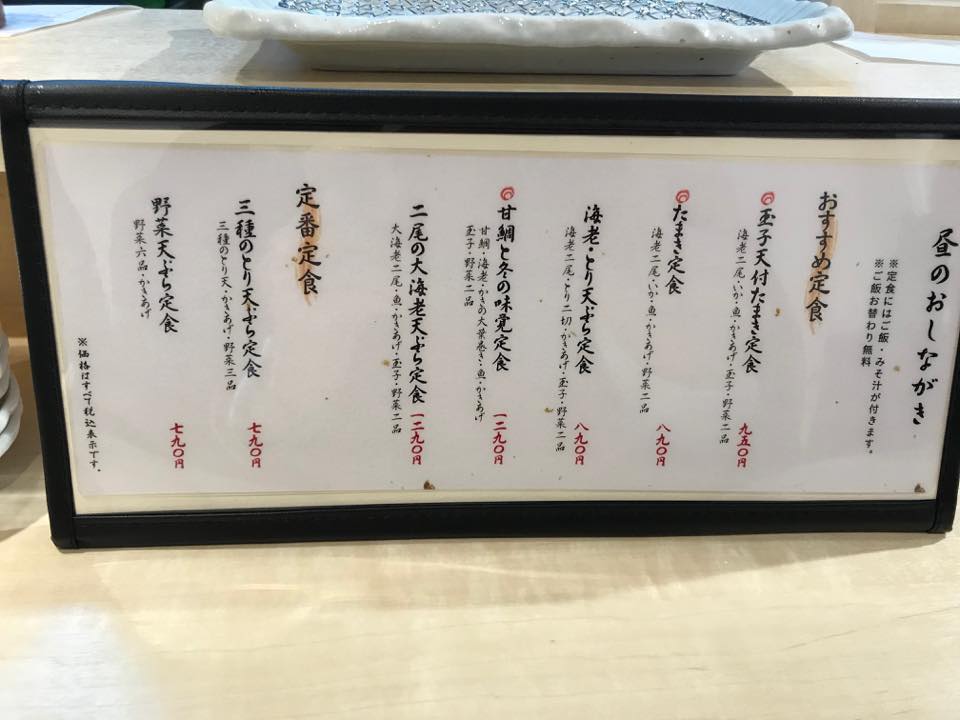 昼のおしながき
※定食にはご飯・みそ汁が付きます。
※ご飯お替わり無料
おすすめ定食
玉子天付たまき定食
海老二尾・いか・魚・かきあげ・玉子・野菜二品
九五〇円
たまき定食
海老二尾・いか・魚・かきあげ・野菜二品
八九〇円
海老・とり天ぷら定食
海老二尾・とり二切・かきあげ・玉子・野菜二品
八九〇円
甘鯛と冬の味覚定食
甘鯛・海老・かきの大葉巻き・魚・かきあげ
玉子・野菜二品
一二九〇円
二尾の大海老天ぷら定食
大海老二尾・魚・かきあげ・玉子・野菜二品
一二九〇円
定番定食
三種のとり天ぷら定食
三種のとり天・かきあげ・野菜三品
七九〇円
野菜天ぷら定食
野菜六品・かきあげ
七九〇円
※価格はすべて税込表示です。